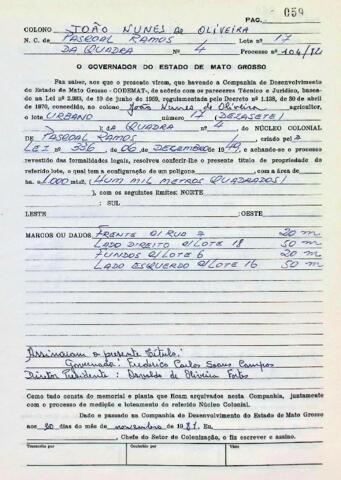 PAG. 059
COLONO JOÃO NUNES de OLIVEIRA
N. C. de PASCOAL RAMOS Lote nº 17
DA QUADRA Nº 4 Processo nº 104/82
O GOVERNADOR DO ESTADO DE MATO GROSSO
Faz saber, aos que o presente virem, que havendo a Companhia de Desenvolvimento
do Estado de Mato Grosso - CODEMAT-, de acôrdo com os pareceres Técnico e Jurídico, basea-
da na Lei nº 2.983, de 19 de junho de 1969, regulamentada pelo Decreto nº 1.138, de 30 de abril
de 1970, concedido, ao colono João Nunes de Oliveira agricultor,
o lote URBANO número 17 (DEZASETE)
); da QUADRA nº 4 do NÚCLEO COLONIAL
DE PASCOAL RAMOS criado pela
LEI nº 336, de 06 de DEZEMBRO de 1949, e achando-se o processo
revestido das formalidades legais, resolveu conferir-lhe o presente título de propriedade do
referido lote, o qual tem a configuração de um polígono, com a área de
ha. 1.000 mts² (HUM MIL METROS QUADRADOS)
), com os seguintes limites: NORTE
: SUL
LESTE :OESTE
MARCOS OU DADOS. FRENTE C/ RUA 2 20 m
LADO DIREITO C/ LOTE 18 50 m
FUNDOS C/ LOTE 6 20 m
LADO ESQUERDO C/ LOTE 16 50 m
Assinaram o presente Título:
Governador: Frederico Carlos Soares Campos
Diretor Presidente: Osvaldo de Oliveira Fortes
Como tudo consta do memorial e planta que ficam arquivados nesta Companhia, juntamente
com o processo de medição e loteamento do referido Núcleo Colonial.
Dado e passado na Companhia de Desenvolvimento do Estado de Mato Grosso
aos 30 dias do mês de novembro de 1981. Eu,
, Chefe do Setor de Colonização, o fiz escrever e assino.
Transcrito por Conferido por Visto